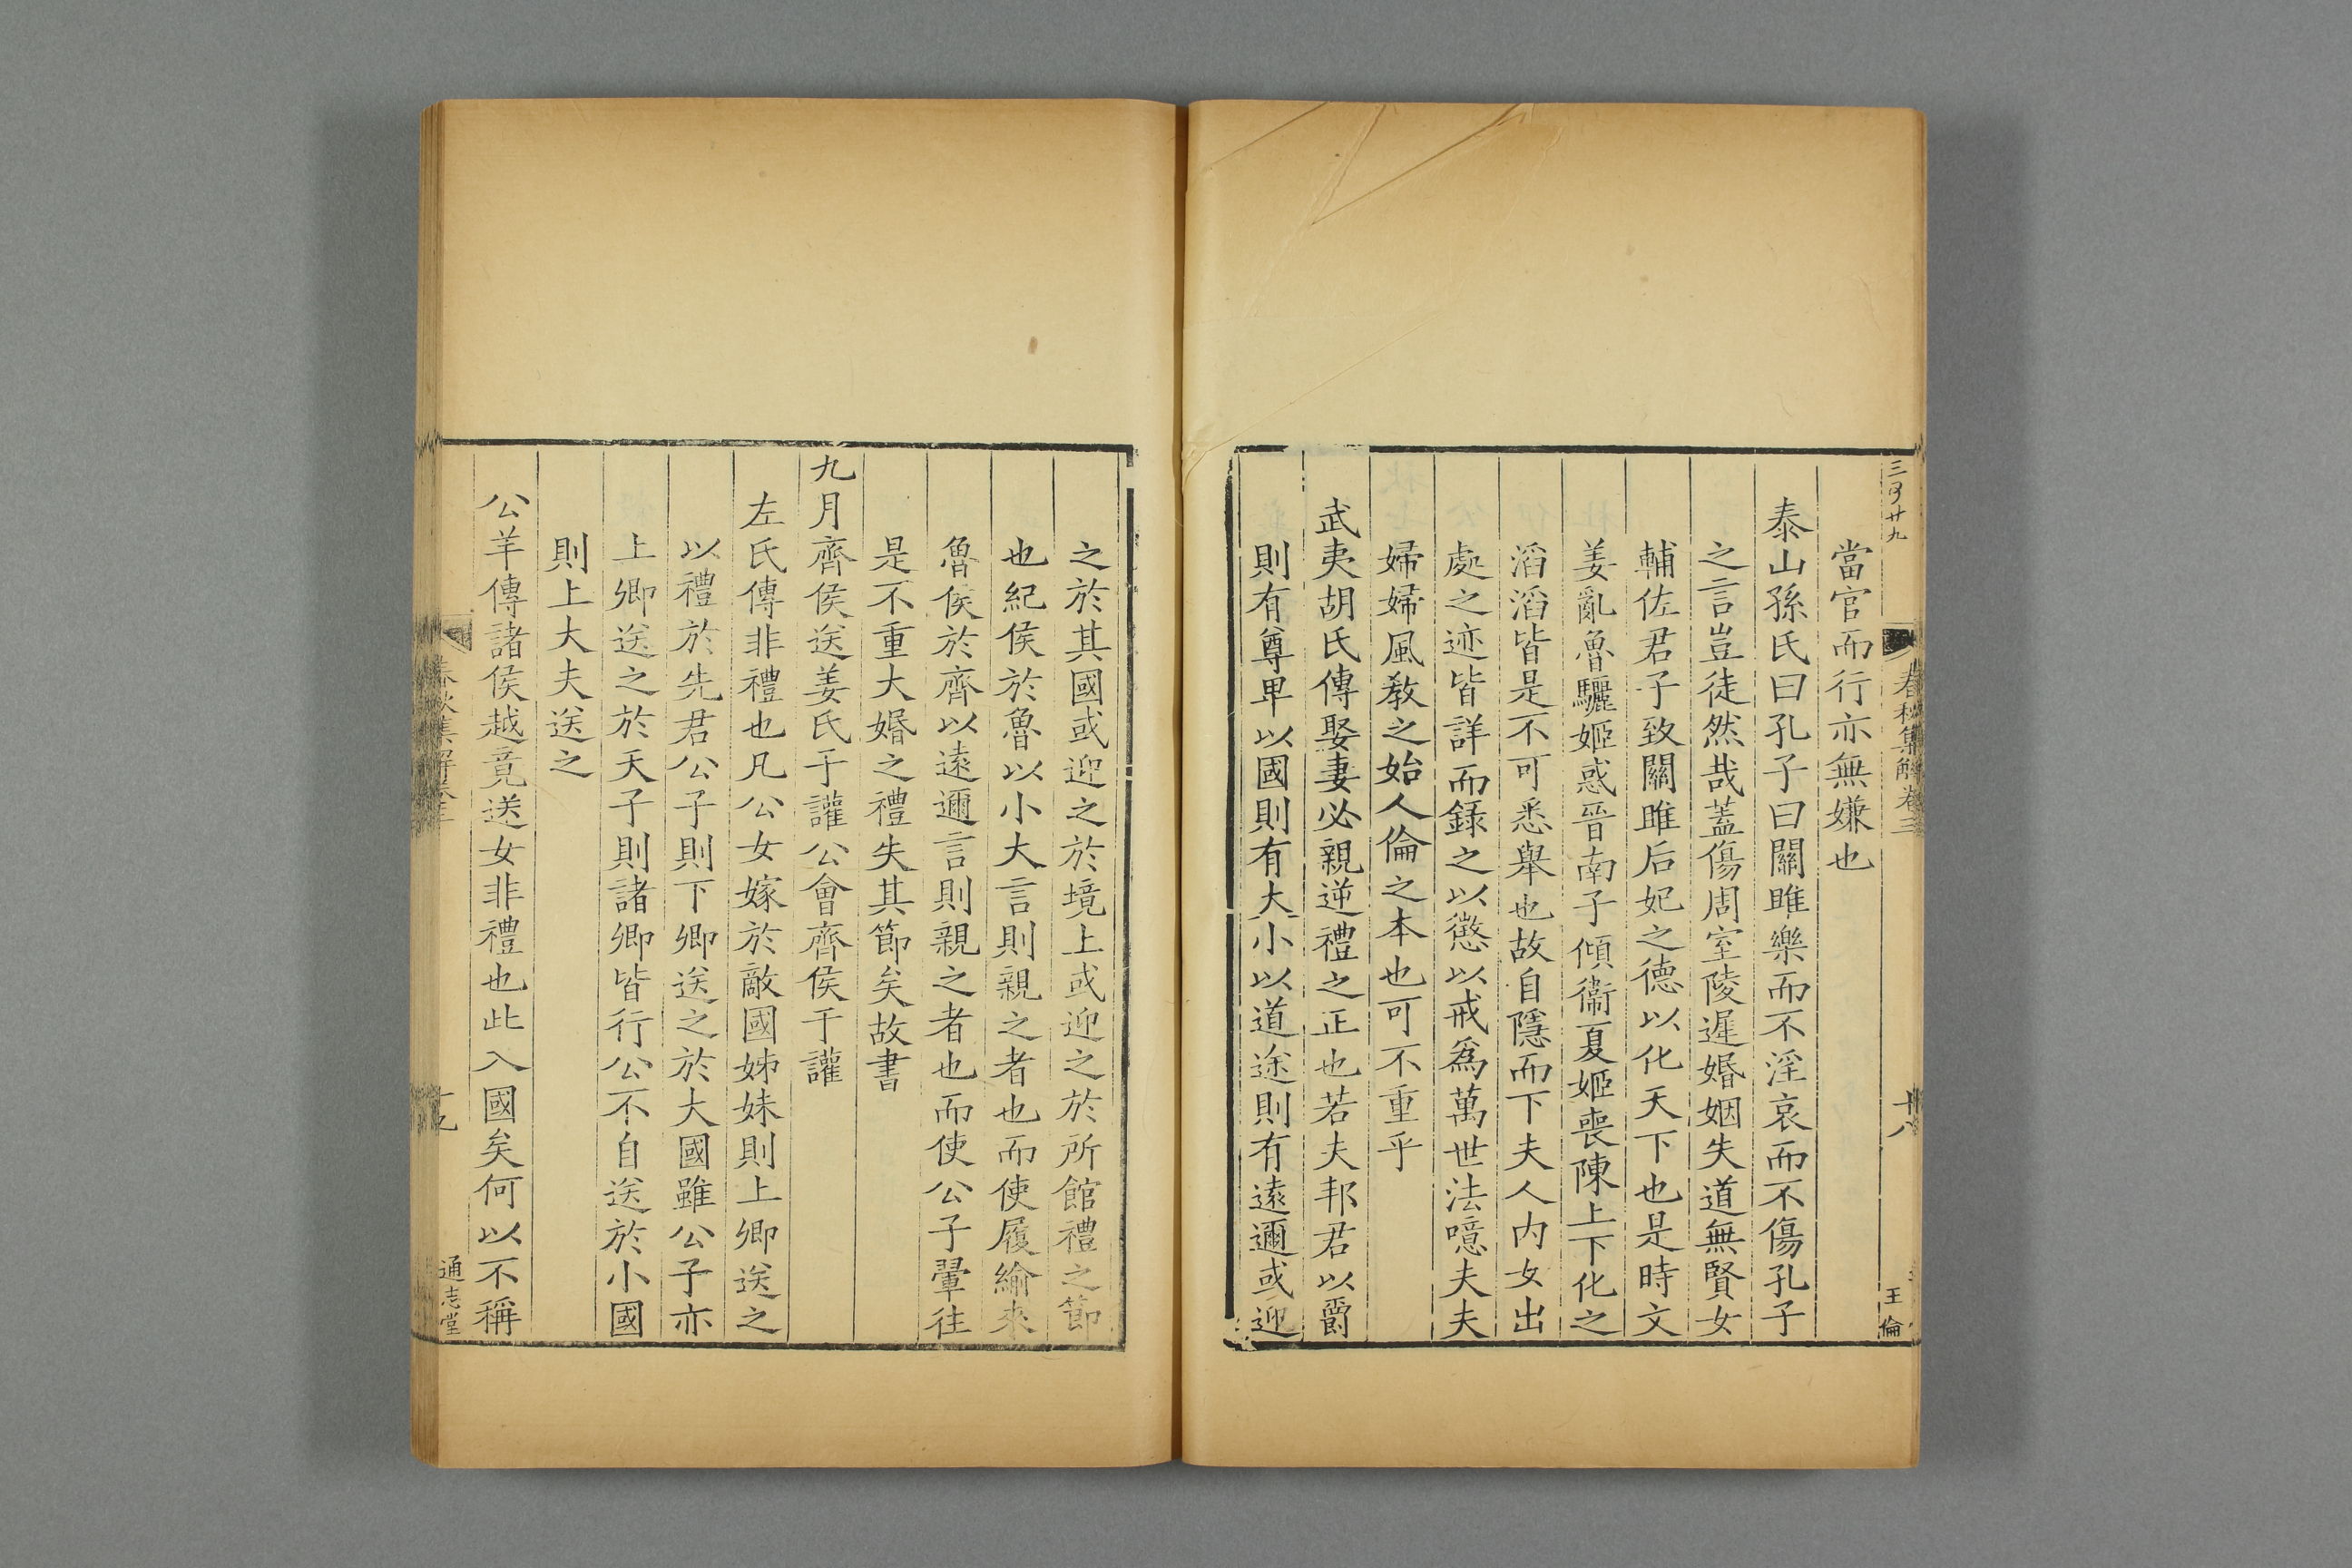 三百廿九
春秋集解卷三
十八
王倫
當官而行亦無嫌也
泰山孫氏曰孔子曰關雎樂而不淫哀而不傷孔子
之言豈徒然哉蓋傷周室陵遲婚姻失道無賢女
輔佐君子致關雎后妃之德以化天下也是時文
姜亂魯驪姬惑晉南子傾衞夏姬喪陳上下化之
滔滔皆是不可悉舉也故自隱而下夫人內女出
處之迹皆詳而錄之以懲以戒爲萬世法噫夫夫
婦婦風教之始人倫之本也可不重乎
武夷胡氏傳娶妻必親逆禮之正也若夫邦君以爵
則有尊卑以國則有大小以道途則有遠邇或迎
之於其國或迎之於境上或迎之於所館禮之節
也紀侯於魯以小大言則親之者也而使履緰來
魯侯於齊以遠邇言則親之者也而使公子翬往
是不重大婚之禮失其節矣故書
九月齊侯送姜氏于讙公會齊侯于讙
左氏傳非禮也凡公女嫁於敵國姊妹則上卿送之
以禮於先君公子則下卿送之於大國雖公子亦
上卿送之於天子則諸卿皆行公不自送於小國
則上大夫送之
公羊傳諸侯越竟送女非禮也此入國矣何以不稱
春秋集解卷三
通志堂